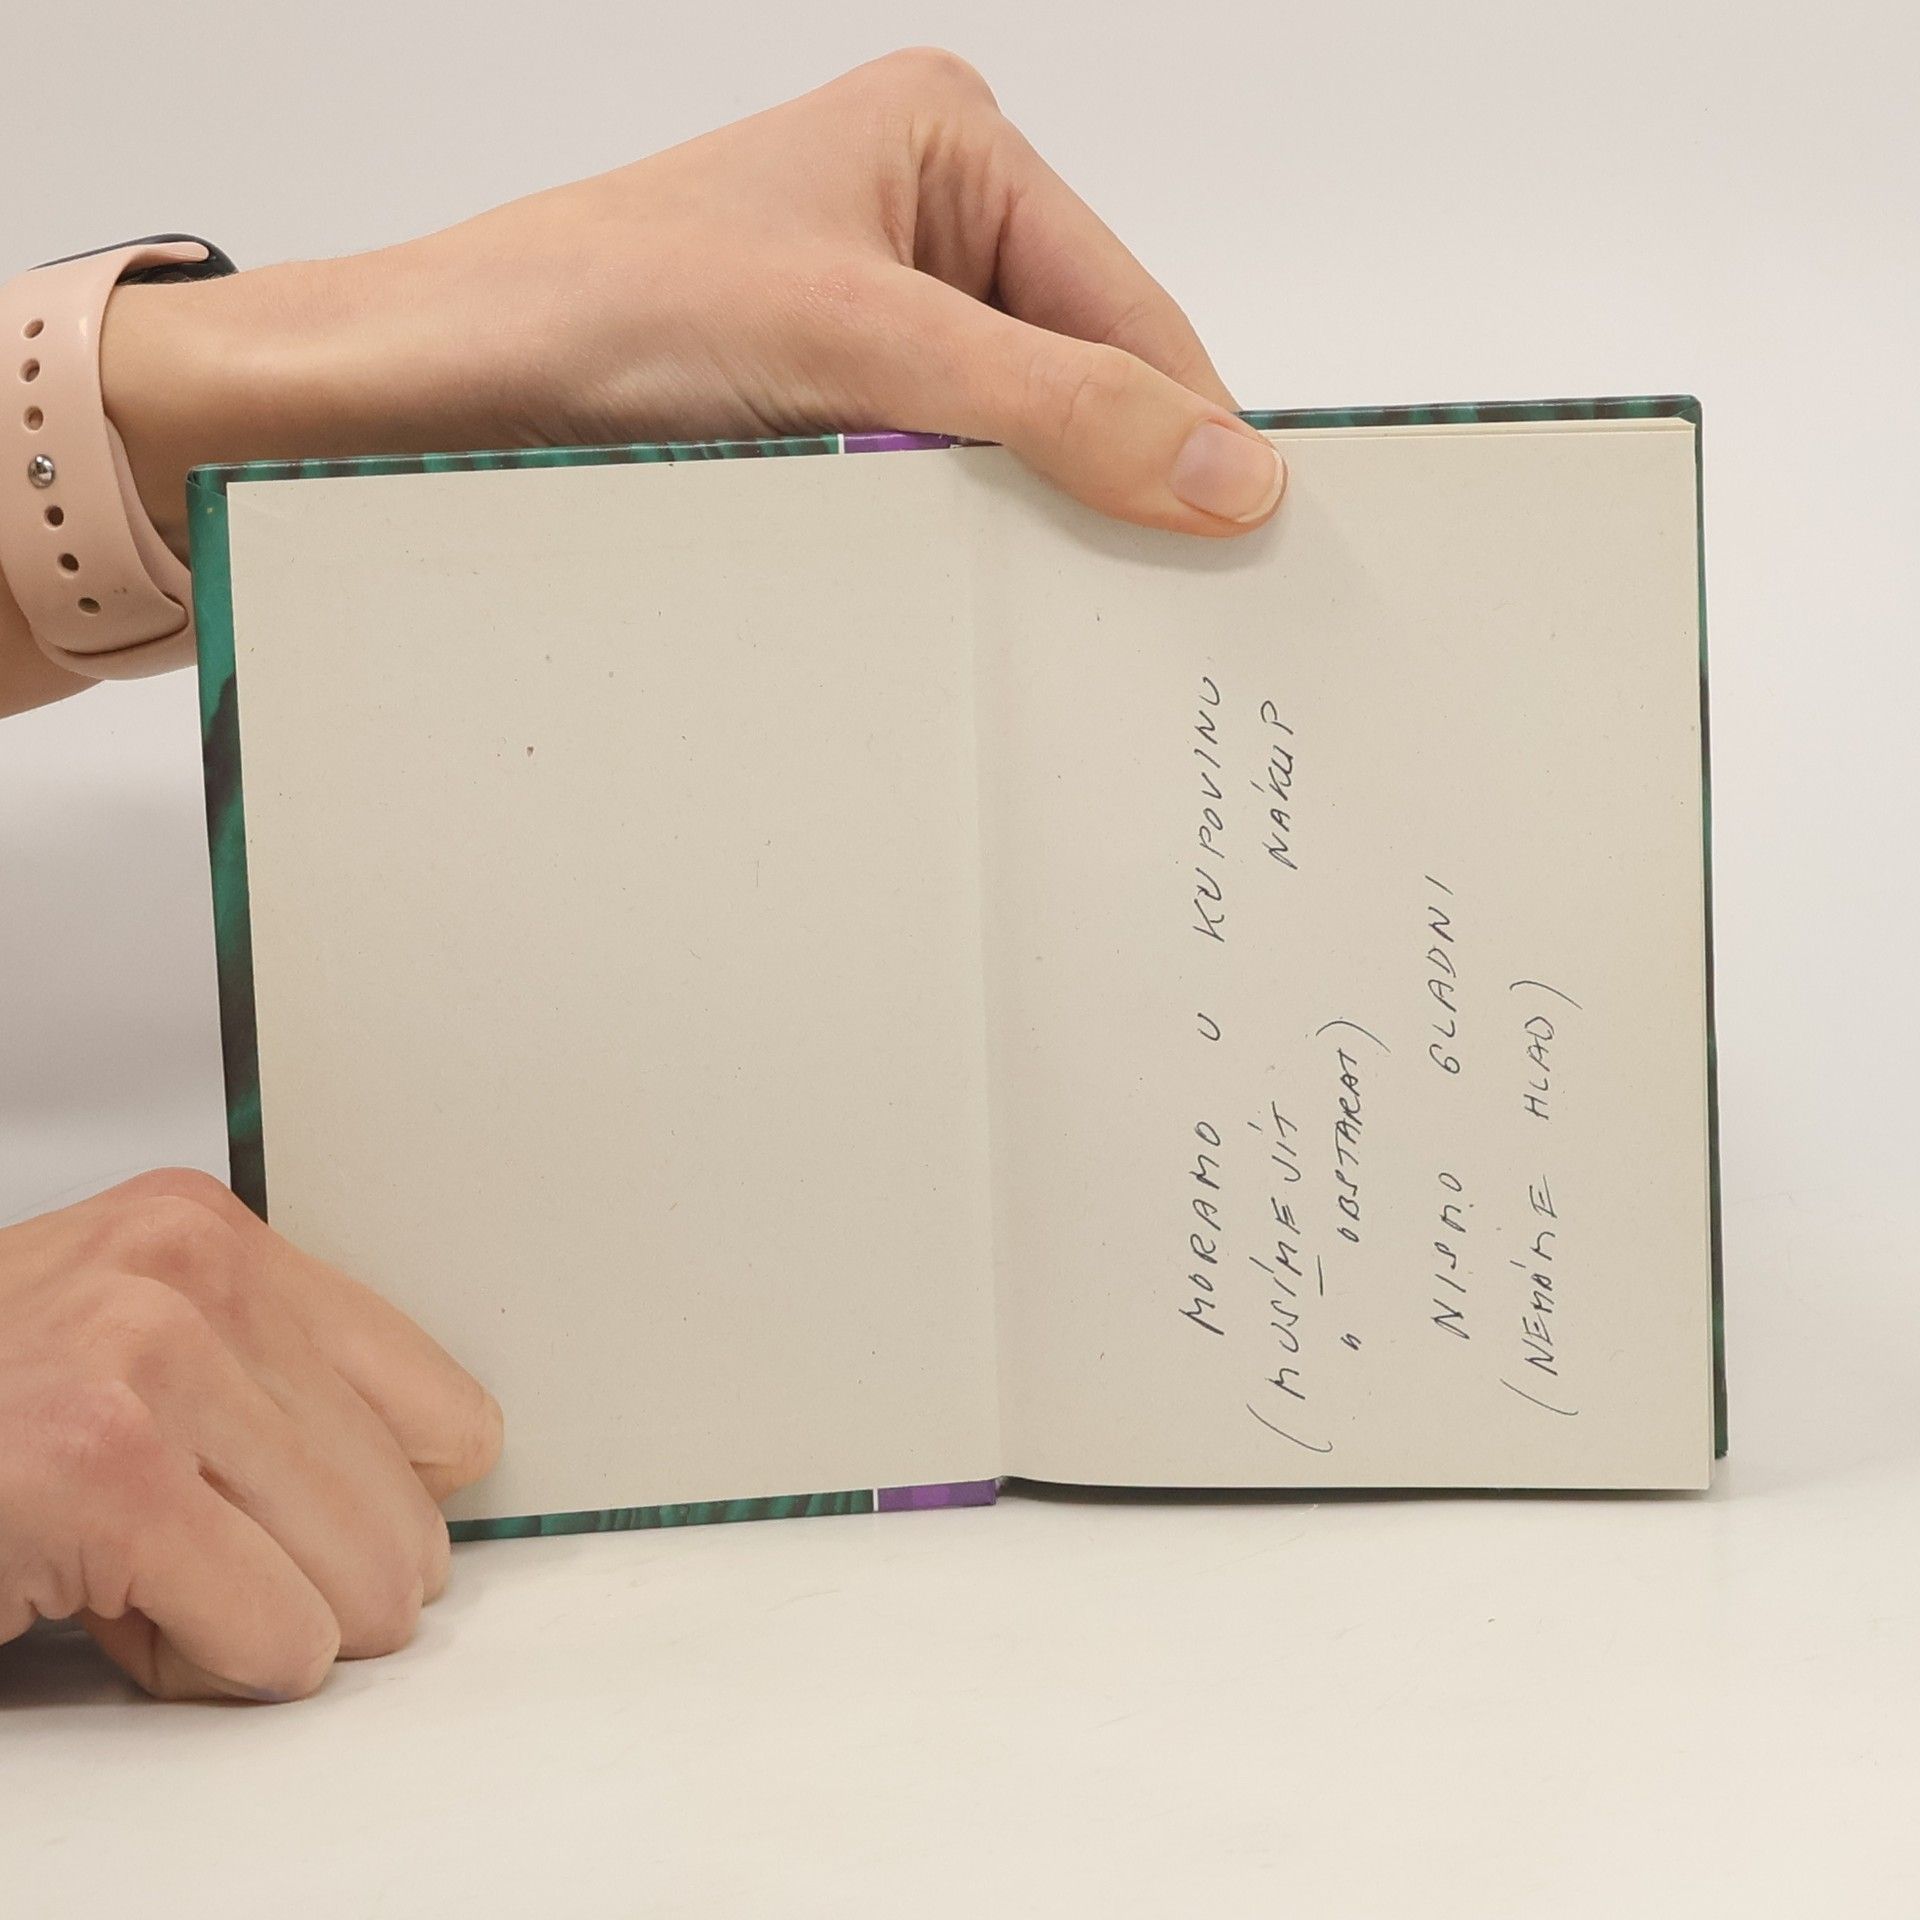 MORAMO U KUPOVINU
(MUSÍME JÍT NÁKUP
" — OBSTARAT)
NISMO GLADNI
(NEMÁME HLAD)